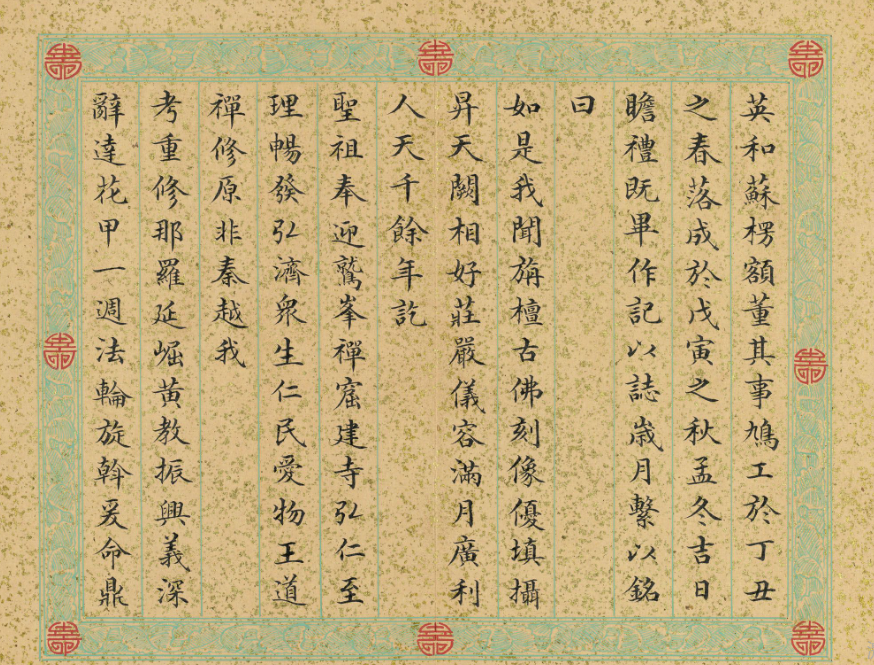 英和蘇楞額董其事鳩工於丁丑
之春落成於戊寅之秋孟冬吉日
瞻禮既畢作記以誌歲月繫以銘
曰
如是我聞旃檀古佛刻像優填攝
昇天闕相好莊嚴儀容滿月廣利
人天千餘年訖
聖祖奉迎鷲峯禪窟建寺弘仁至
理暢發弘濟衆生仁民愛物王道
禪修原非秦越我
考重修那羅延崛黃教振興義深
辭達花甲一週法輪旋斡爰命鼎